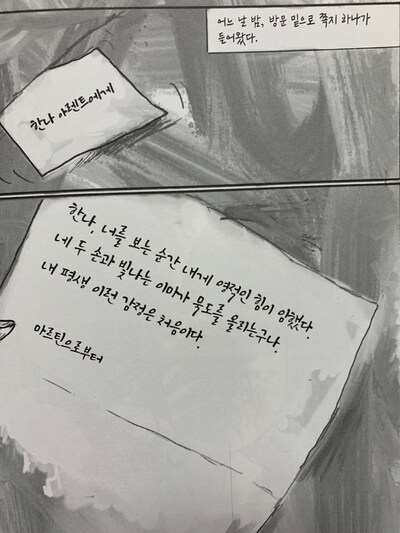 어느 날 밤, 방문 밑으로 쪽지 하나가
들어왔다.
한나 아렌트에게
한나, 너를 보는 순간 내게 영적인 힘이 임했다.
네 두 손과 빛나는 이마가 묵도를 올리는구나.
내 평생 이런 감정은 처음이다.
마르틴으로부터